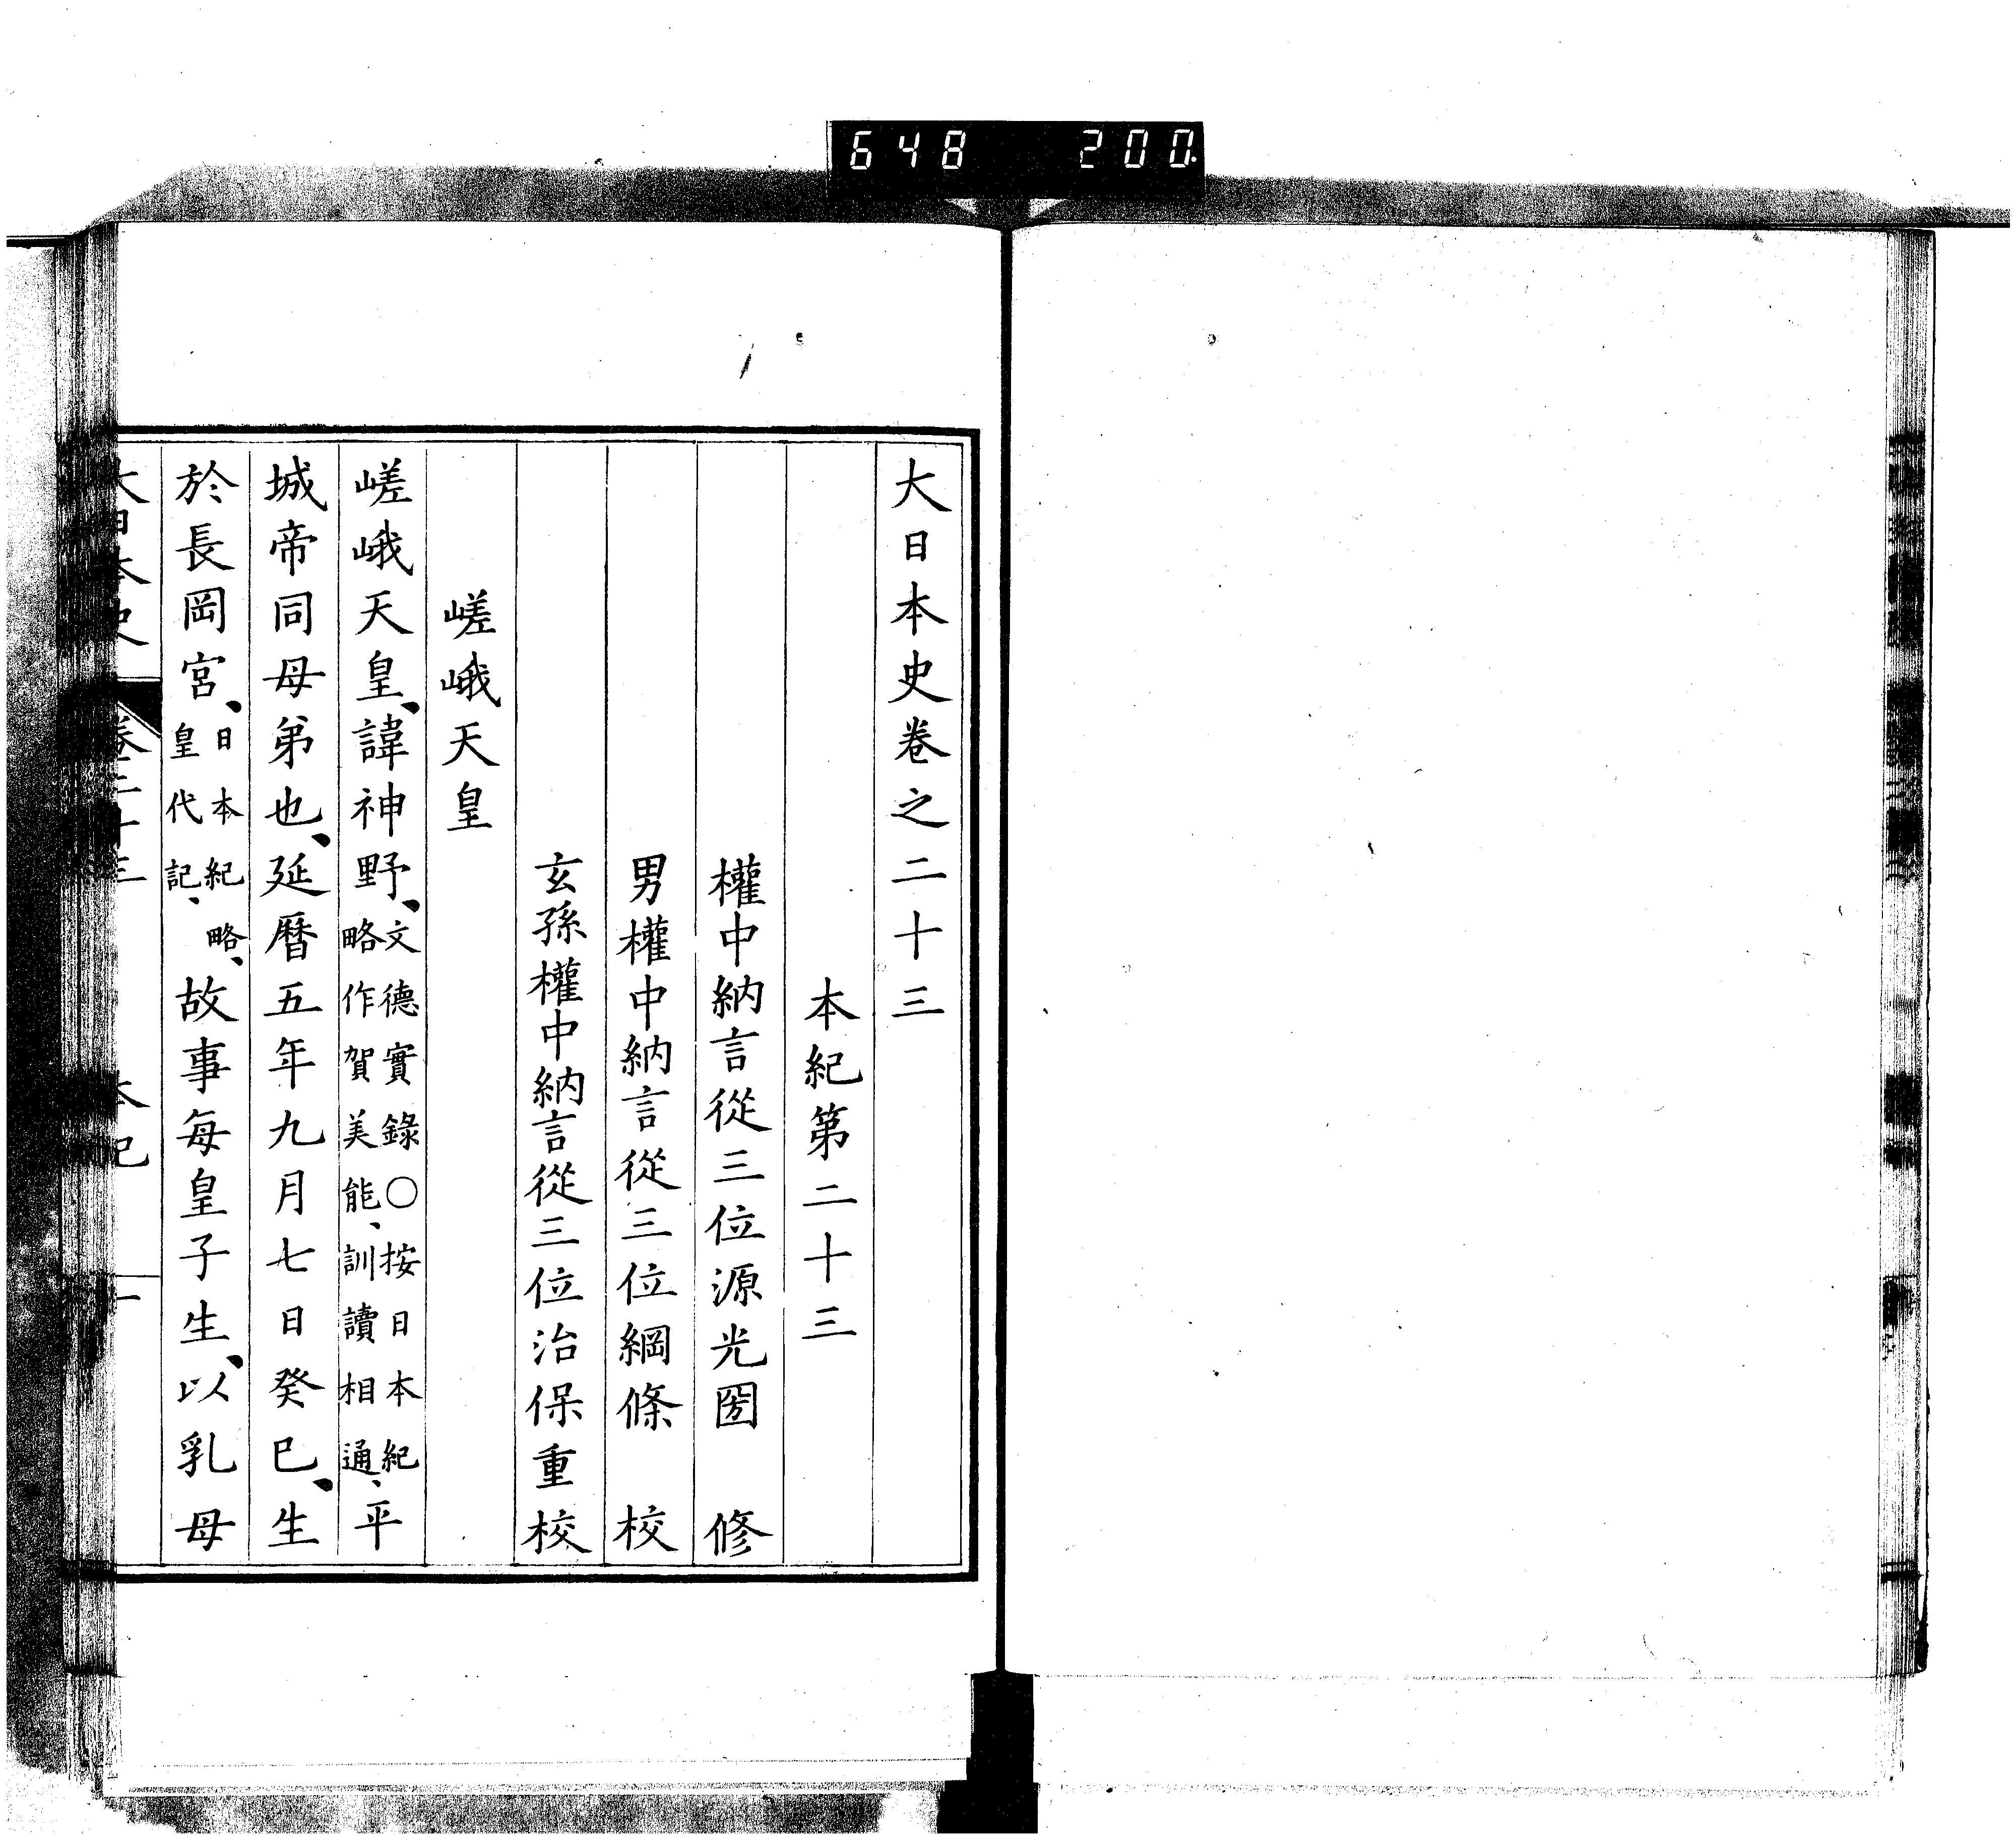 648 200
大日本史卷之二十三
本紀第二十三
權中納言從三位源光圀 修
男權中納言從三位綱條 校
玄孫權中納言從三位治保重校
嵯峨天皇
嵯峨天皇、諱神野、文德實錄○按日本紀略作賀美能、訓讀相通、平
城帝同母弟也、延曆五年九月七日癸巳、生
於長岡宮、日本紀略、皇代記、故事每皇子生、以乳母
大日本史 卷二十三 本紀 一